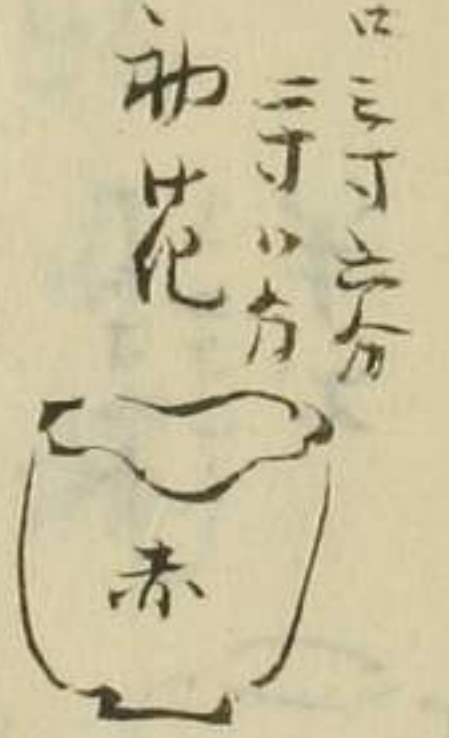 口三寸六分
二寸八分
初花
赤